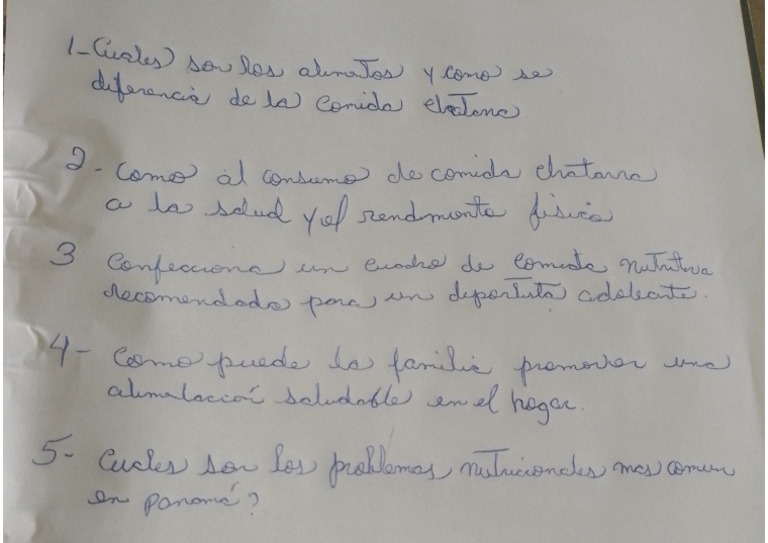 1- Cuales son los alimatos y como se
diferencia de la comida chatarra
2- Como al consumo de comida chatarra
a la salud y el rendimento fisico
3 Confecciona un cuadro de comida nutritiva
recomendada para un deportista adolecente.
4- Como puede la familia promover una
alimatación saludable en el hogar.
5- Cuales son los problemas nutricionales mas comun
en panamá?